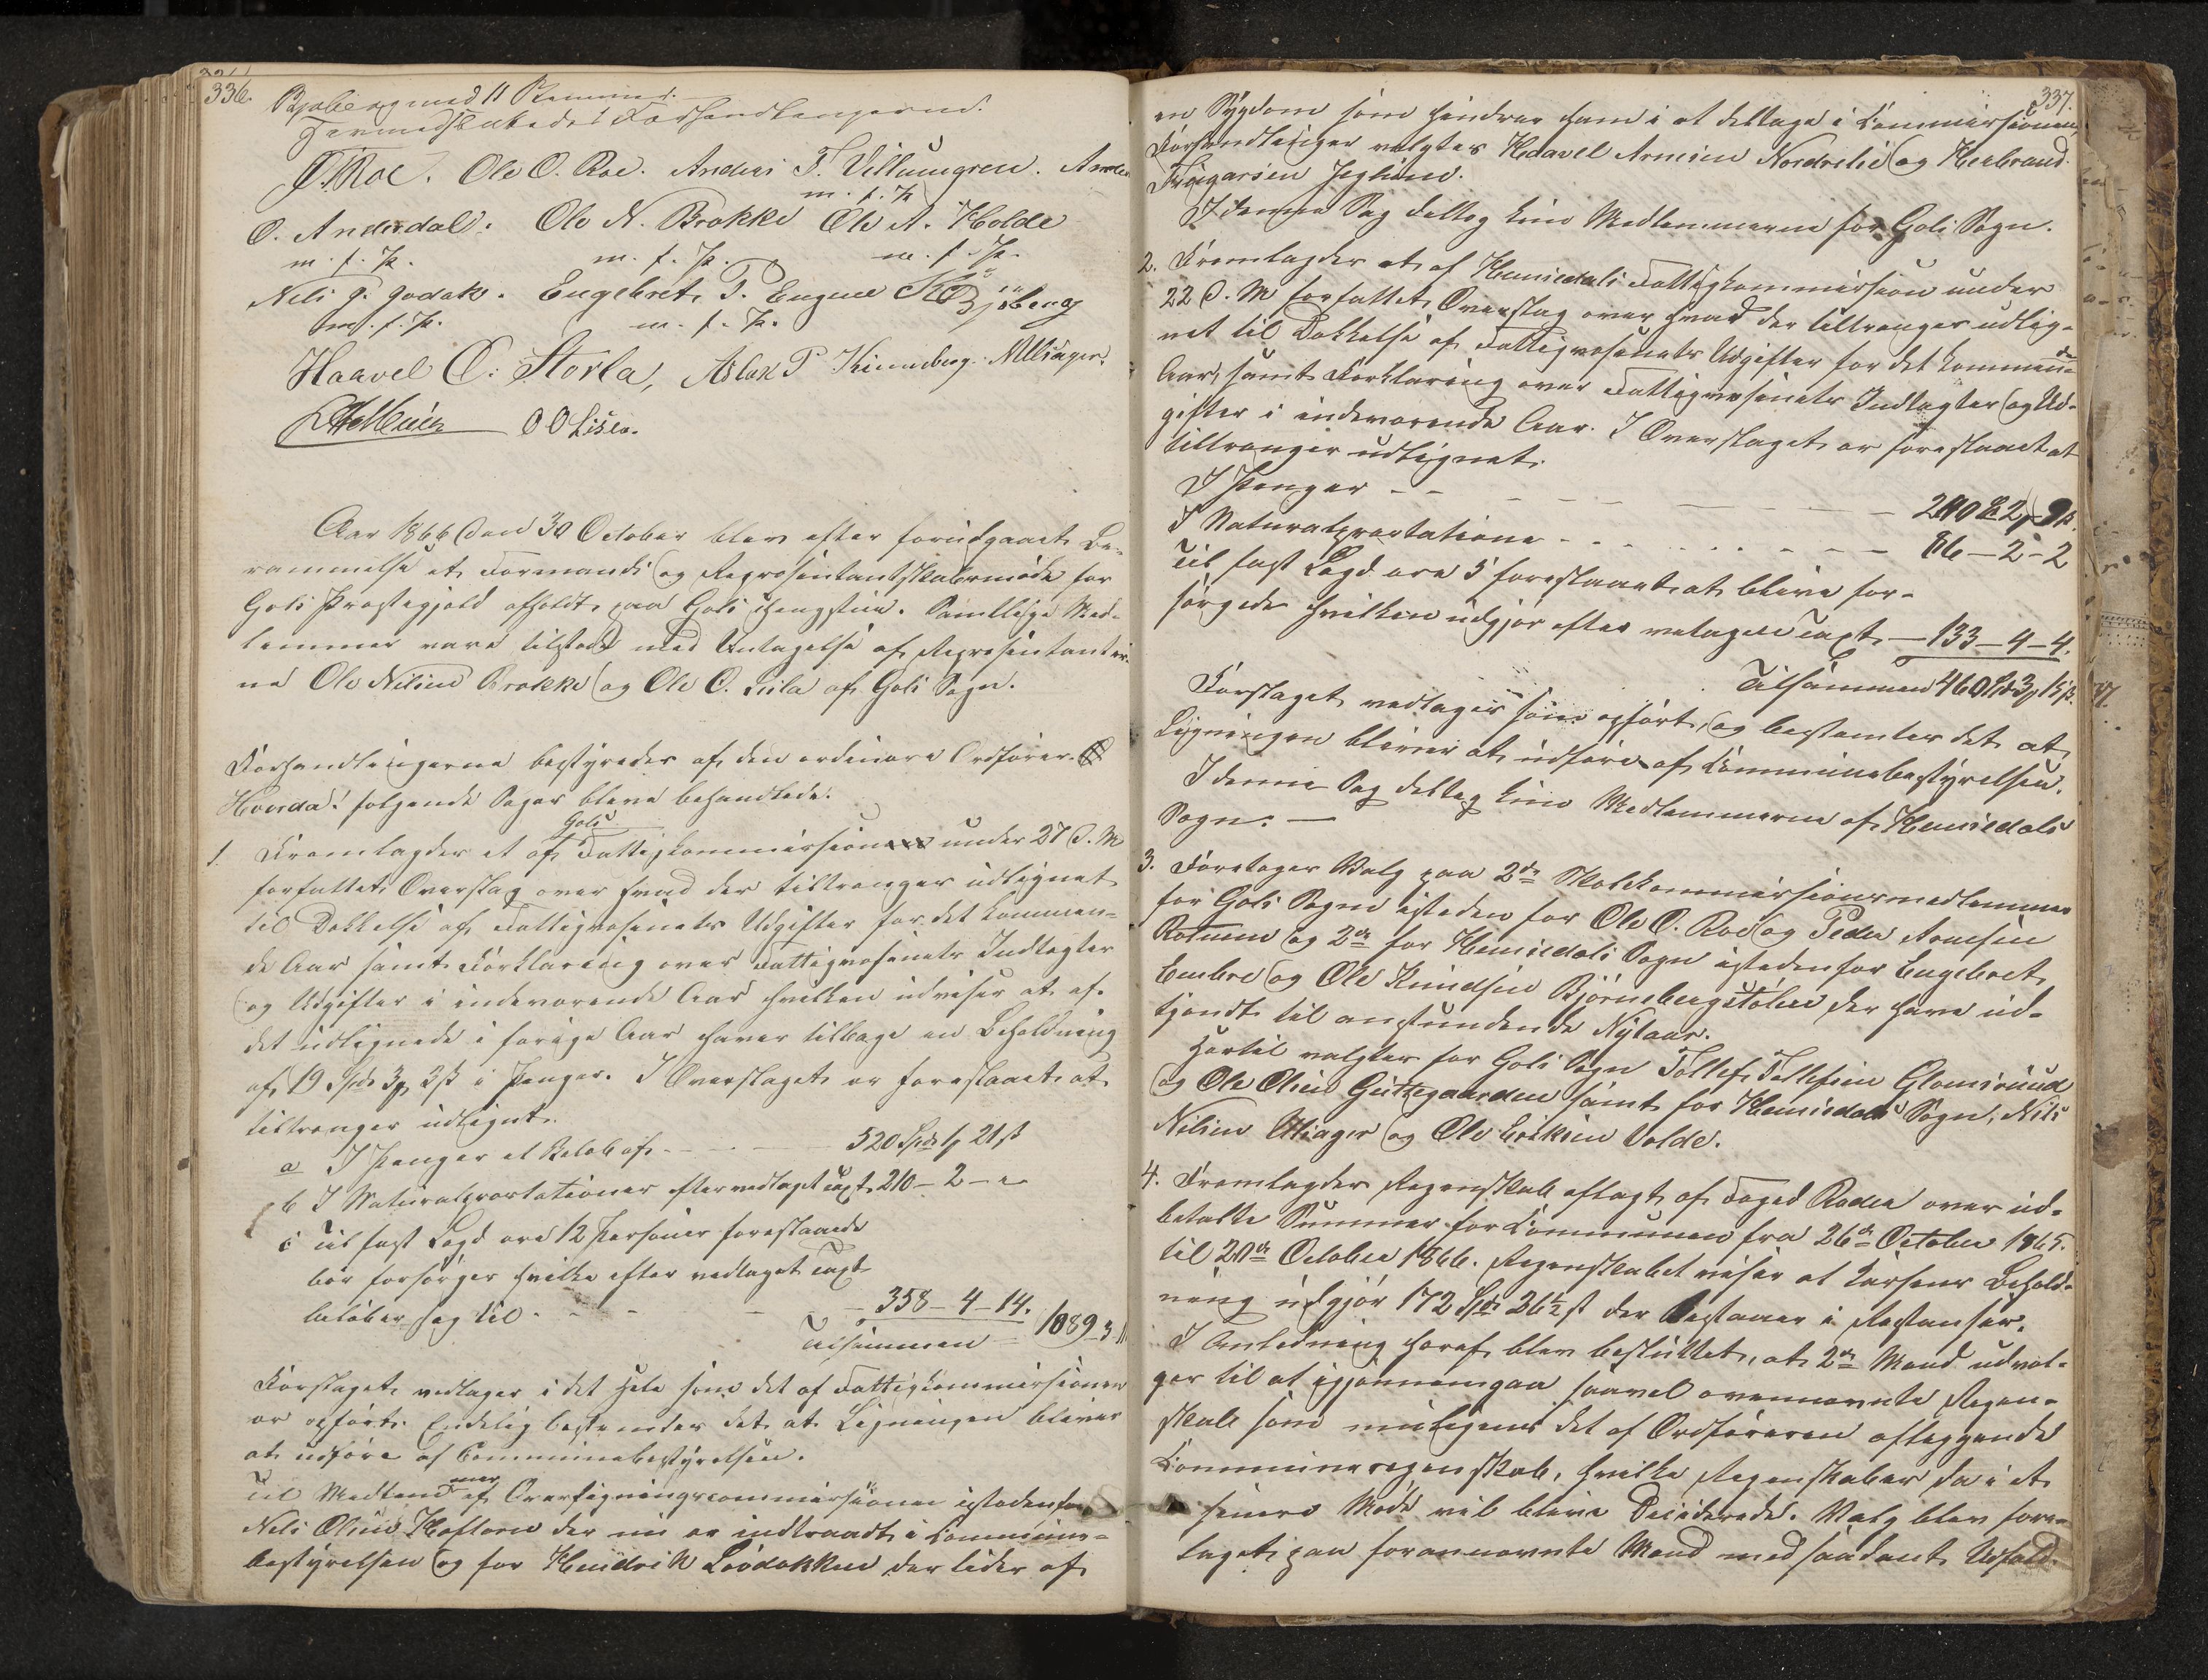 336.
Bjøberg med 11 Stemmer.
Hermed sluttedes Forhandlingerne.
T. Roe. Ole O. Roe. Anders T. Villumgren.
m. f. P.
O. Anderdal. Ole N. Brokke Ole A. Holde
m. f. P. m. f. P. m. f. P.
Nils P. Godak. Engebret P. Eugene Bjöberg
m. f. P. m. f. P.
Haavel O. Storla, Aslak P Kinneberg. NUlsager.
O O Lisla.
Aar 1866 den 30 October blev efter forudgaaet Be-
rammelse et Formands og Repræsentantskabsmøde for
Gols Præstegjeld afholdt paa Gols Thingstue. Samtlige Med-
lemmer vare tilstede med Undtagelse af Repræsentanter-
ne Ole Nilsen Brokke og Ole O. Lisla af Gols Sogn.
Forhandlingerne bestyredes af den ordinære Ordfører
følgende Sager bleve behandlede.
1. Fremlagdes et af Gols Fattigkommission under 27 d. M
forfattet Overslag over hvad der tiltrænges udlignet
til Dækkelse af Fattigvæsenets Udgifter for det kommen-
de Aar samt Forklaring over Fattigvæsenets Indtægter
og Udgifter i indeværende Aar hvilken udviser at af
det udlignede i forige Aar haves tilbage en Beholdning
af 19 Spd 3 2 ß i Penger. I Overslaget er foreslaaet at
tiltrænges udlignt.
a I Penger et Beløb af - - - 520 Spd 1 21 ß
b I Naturalpræstationer efter vedtaget Taxt 210 - 2 - "
c Til fast Lægd ere 12 Personer foreslaaede
bør forsørges hvilke efter vedtaget Taxt
beløber sig til - - - - 358 - 4 - 14.
Tilsammen - 1089 3 11
Forslaget vedtages i det Hele som det af Fattigkommissionen
er opført. Endelig bestemtes det at Ligningen bliver
at udføre af Communebestyrelsen.
Til Medlemmer af Overligningscommissionen istedenfor
Nils Olsen Hoftun der nu er indtraadt i Commune-
bestyrelsen og for Hendrik Løvdokken der lider af
337.
en Sygdom som hindrer ham i at deltage i Commissionens
Forhandlinger valgtes Haavel Arnesen Nordrelie og Herbrand
I denne Sag deltog kun Medlemmerne for Gols Sogn.
2. Fremlagdes et af Hemsedals Fattigkommission under
22 d. M forfattet Overslag over hvad der tiltrænges udlig-
net til Dækkelse af Fattigvæsenets Udgifter for det kommende
Aar, samt Forklaring over Fattigvæsenets Indtægter og Ud-
gifter i indeværende Aar. I Overslaget er foreslaaet at
tiltrænges udlignet.
I Penger - - - - - - 240 2 9 ß.
I Naturalpræstatione - - - - - 86 - 2 - 2
Til fast Lægd ere 5 foreslaaet at blive for-
sørgede hvilken udgjør efter vetagen Taxt - 133 - 4 - 4.
Tilsammen 460 Spd 3 15 ß.
Forslaget vedtages som opført, og bestemtes det at
Ligningen bliver at udføre af Communebestyrelsen.
I denne Sag deltog kun Medlemmerne af Hemsedals
Sogn. -
3. Foretoges Valg paa 2de Skolekommissionsmedlemmer
for Gols Sogn isteden for Ole O. Roe og Peder Arnesen
Rotnem og 2de for Hemsedals Sogn istedenfor Engebret
Embre og Ole Knudsen Bjørnebergstølen der have ud-
tjendt til anstundende Nytaar.
Hertil valgtes for Gols Sogn Tollef Tollefsen Glomsrud
og Ole Olsen Guttegaarden samt for Hemsedals Sogn, Nils
Nilsen Ulsager og Ole Eriksen Volde.
4. Fremlagdes Regenskab aflagt af Foged Roder over ud-
betalte Summer for Communen fra 26de October 1865.
til 20de October 1866. Regenskabet viser at Kassens Behold-
ning udgjør 172 Spd 26½ ß der bestaaer i Restanser.
I Anledning heraf blev besluttet, at 2de Mænd udvæl-
ges til at igjennemgaa saavel ovennævnte Regen-
skab som muligens det af Ordføreren aflæggende
Communeregenskab, hvilke Regenskaber da i et
senere Møde vil blive Deciderede. Valg blev fore-
taget paa forannævnte Mænd med saadant Udfald.